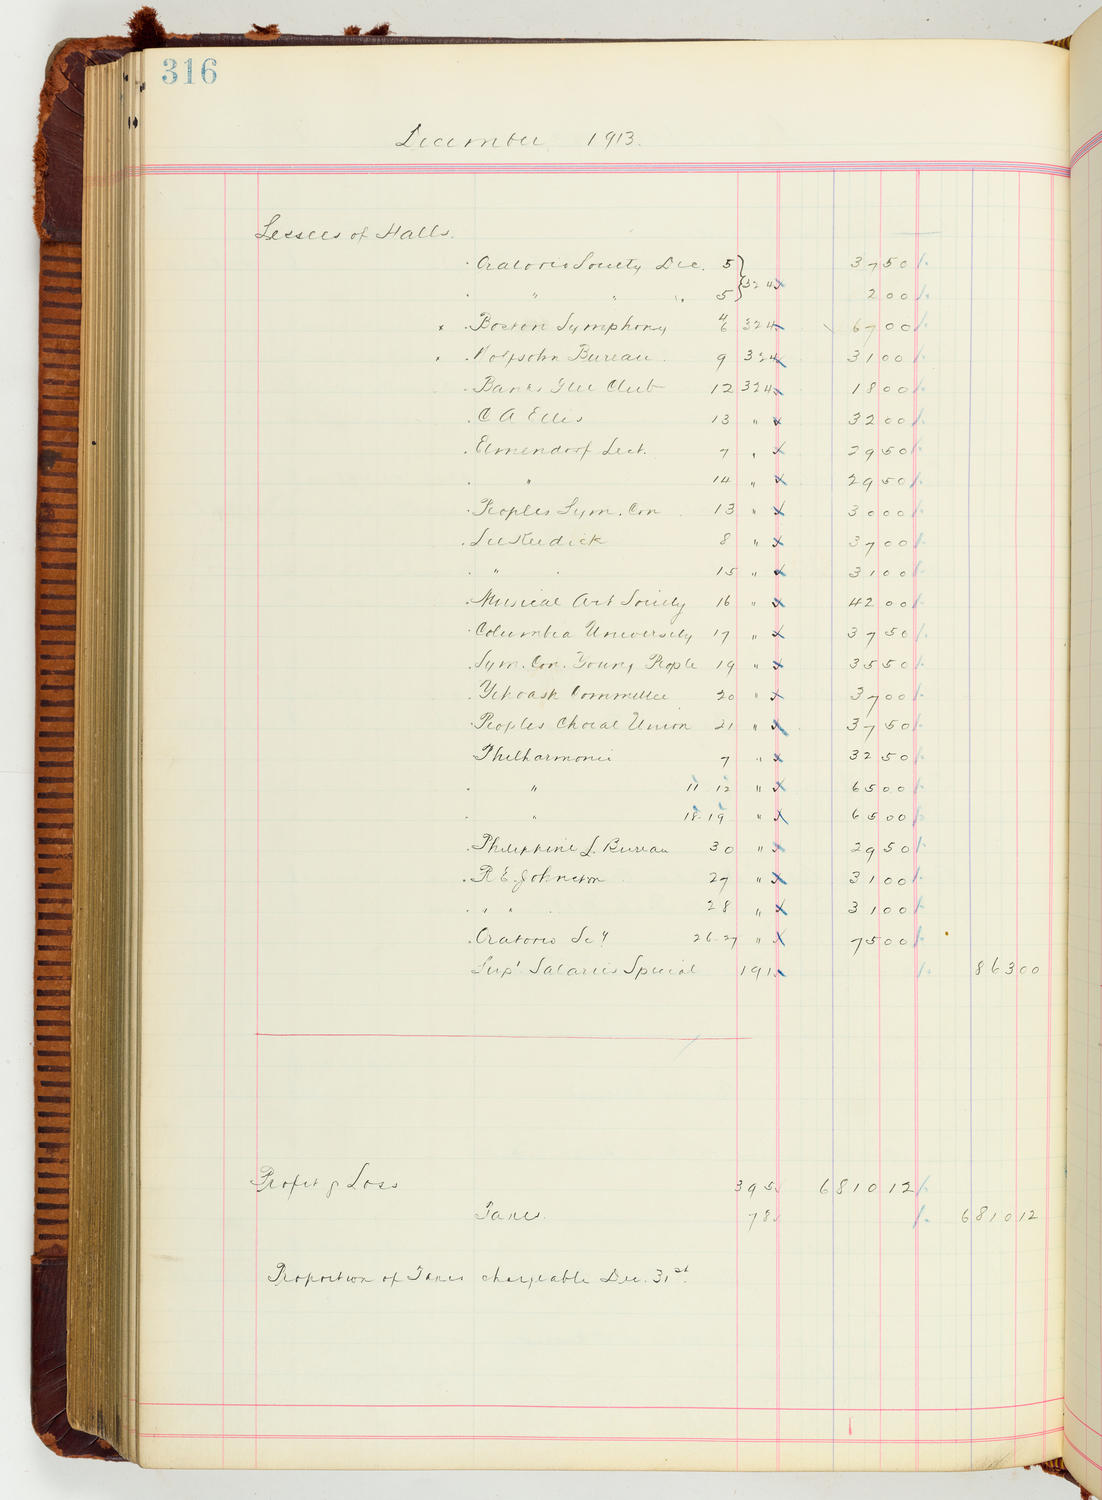 316
December 1913.
Lessees of Halls.
Oratorio Society Dec. 5 } 324 37 50
" " " 5 2 00
Boston Symphony 4 6 324 67 00
Wolfsohn Bureau 9 324 31 00
Banks Glee Club 12 324 18 00
C A Ellis 13 " 32 00
Elmendorf Lect. 7 " 29 50
" 14 " 29 50
Peoples Sym. Con 13 " 30 00
Lee Keedick 8 " 37 00
" 15 " 31 00
Musical Art Society 16 " 42 00
Columbia University 17 " 37 50
Sym. Con. Young People 19 " 35 50
Committee 20 " 37 00
Peoples Choral Union 21 " 37 50
Philharmonic 7 " 32 50
" 11 12 " 65 00
" 18-19 " 65 00
Philippine L. Bureau 30 " 29 50
R E Johnston 27 " 31 00
" " 28 " 31 00
Oratorio Soy 26-27 " 75 00
Supt Salaries Special 191 863 00
Profit & Loss 395 6810 12
Taxes 78 6810 12
Proportion of Taxes chargeable Dec. 31st.